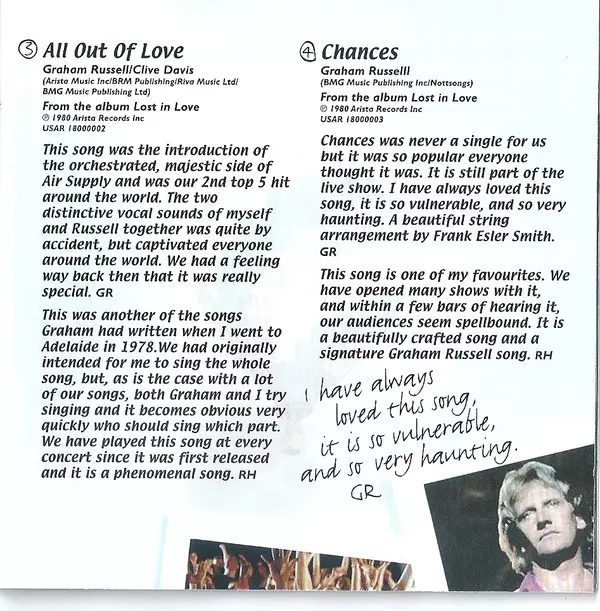 3 All Out Of Love
Graham Russell/Clive Davis
(Arista Music Inc/BRM Publishing/Riva Music Ltd/
BMG Music Publishing Ltd)
From the album Lost in Love
℗ 1980 Arista Records Inc
USAR 18000002
This song was the introduction of
the orchestrated, majestic side of
Air Supply and was our 2nd top 5 hit
around the world. The two
distinctive vocal sounds of myself
and Russell together was quite by
accident, but captivated everyone
around the world. We had a feeling
way back then that it was really
special. GR
This was another of the songs
Graham had written when I went to
Adelaide in 1978.We had originally
intended for me to sing the whole
song, but, as is the case with a lot
of our songs, both Graham and I try
singing and it becomes obvious very
quickly who should sing which part.
We have played this song at every
concert since it was first released
and it is a phenomenal song. RH
4 Chances
Graham Russelll
(BMG Music Publishing Inc/Nottsongs)
From the album Lost in Love
℗ 1980 Arista Records Inc
USAR 18000003
Chances was never a single for us
but it was so popular everyone
thought it was. It is still part of the
live show. I have always loved this
song, it is so vulnerable, and so very
haunting. A beautiful string
arrangement by Frank Esler Smith.
GR
This song is one of my favourites. We
have opened many shows with it,
and within a few bars of hearing it,
our audiences seem spellbound. It is
a beautifully crafted song and a
signature Graham Russell song. RH
I have always
loved this song,
it is so vulnerable,
and so very haunting.
GR